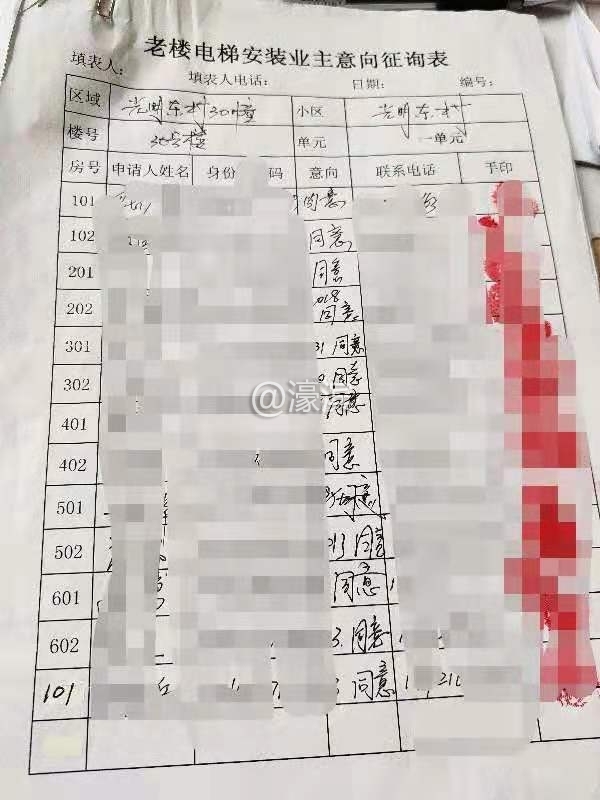 老楼电梯安装业主意向征询表
填表人: 填表人电话: 日期: 编号:
区域 光明东村30幢 小区 光明东村
楼号 30号楼 单元 一单元
房号 申请人姓名 身份 码 意向 联系电话 手印
101 同意
102 同意
201 同意
202 同意
301 31 同意
302 同意
401 同意
402 同意
501
502 同意
601 同意
602 3. 同意
101 同意
@濠滨